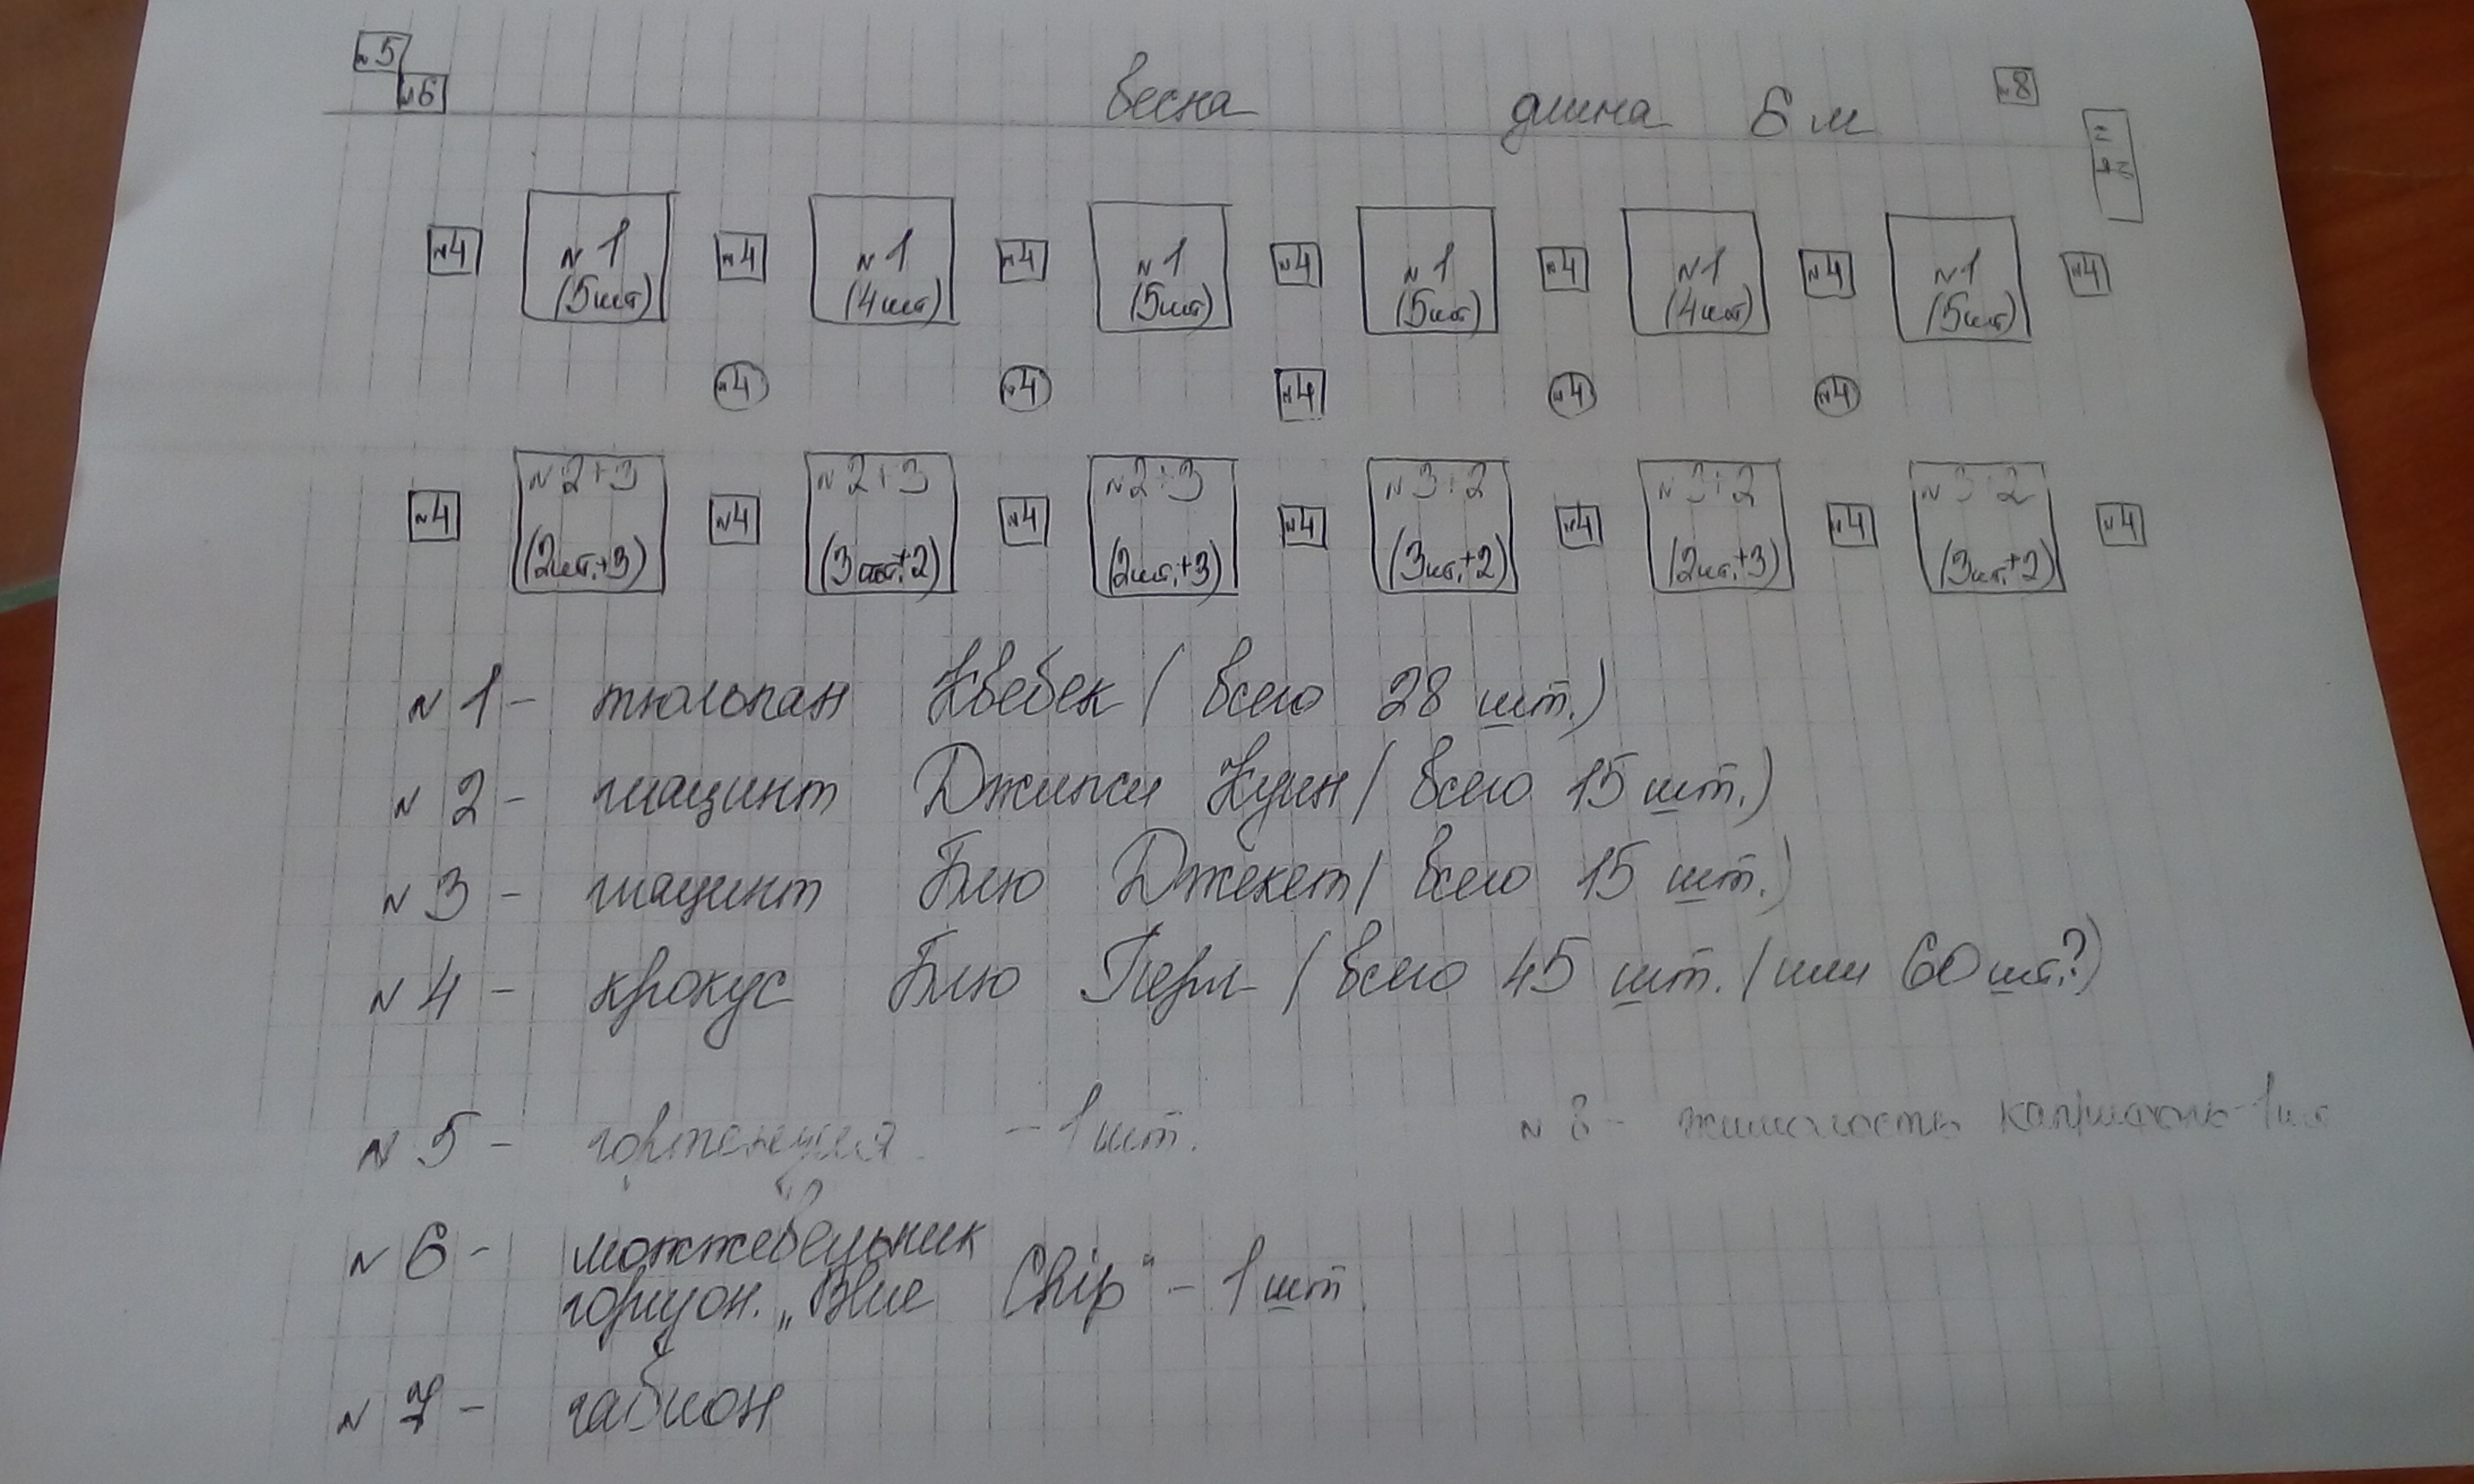 №5
№6
весна длина 6 м
№8
№7
№4 №1 (5шт) №4 №1 (4шт) №4 №1 (5шт) №4 №1 (5шт) №4 №1 (4шт) №4 №1 (5шт) №4
№4 №4 №4 №4 №4
№2+3 №2+3 №2+3 №3+2 №3+2 №3+2
№4 №4 №4 №4 №4 №4 №4
(2шт.+3) (3шт.+2) (2шт.+3) (3шт.+2) (2шт.+3) (3шт.+2)
№1 - тюльпан Квебек (всего 28 шт.)
№2 - гиацинт Джипси Куин (всего 15 шт.)
№3 - гиацинт Блю Джекет (всего 15 шт.)
№4 - крокус Блю Перл (всего 45 шт. (или 60 шт.?)
№5 - гортензия - 1 шт.
№8 - жимолость каприфоль - 1 шт
№6 - можжевельник
горизон. „Blue Chip" - 1 шт.
№7 - габион